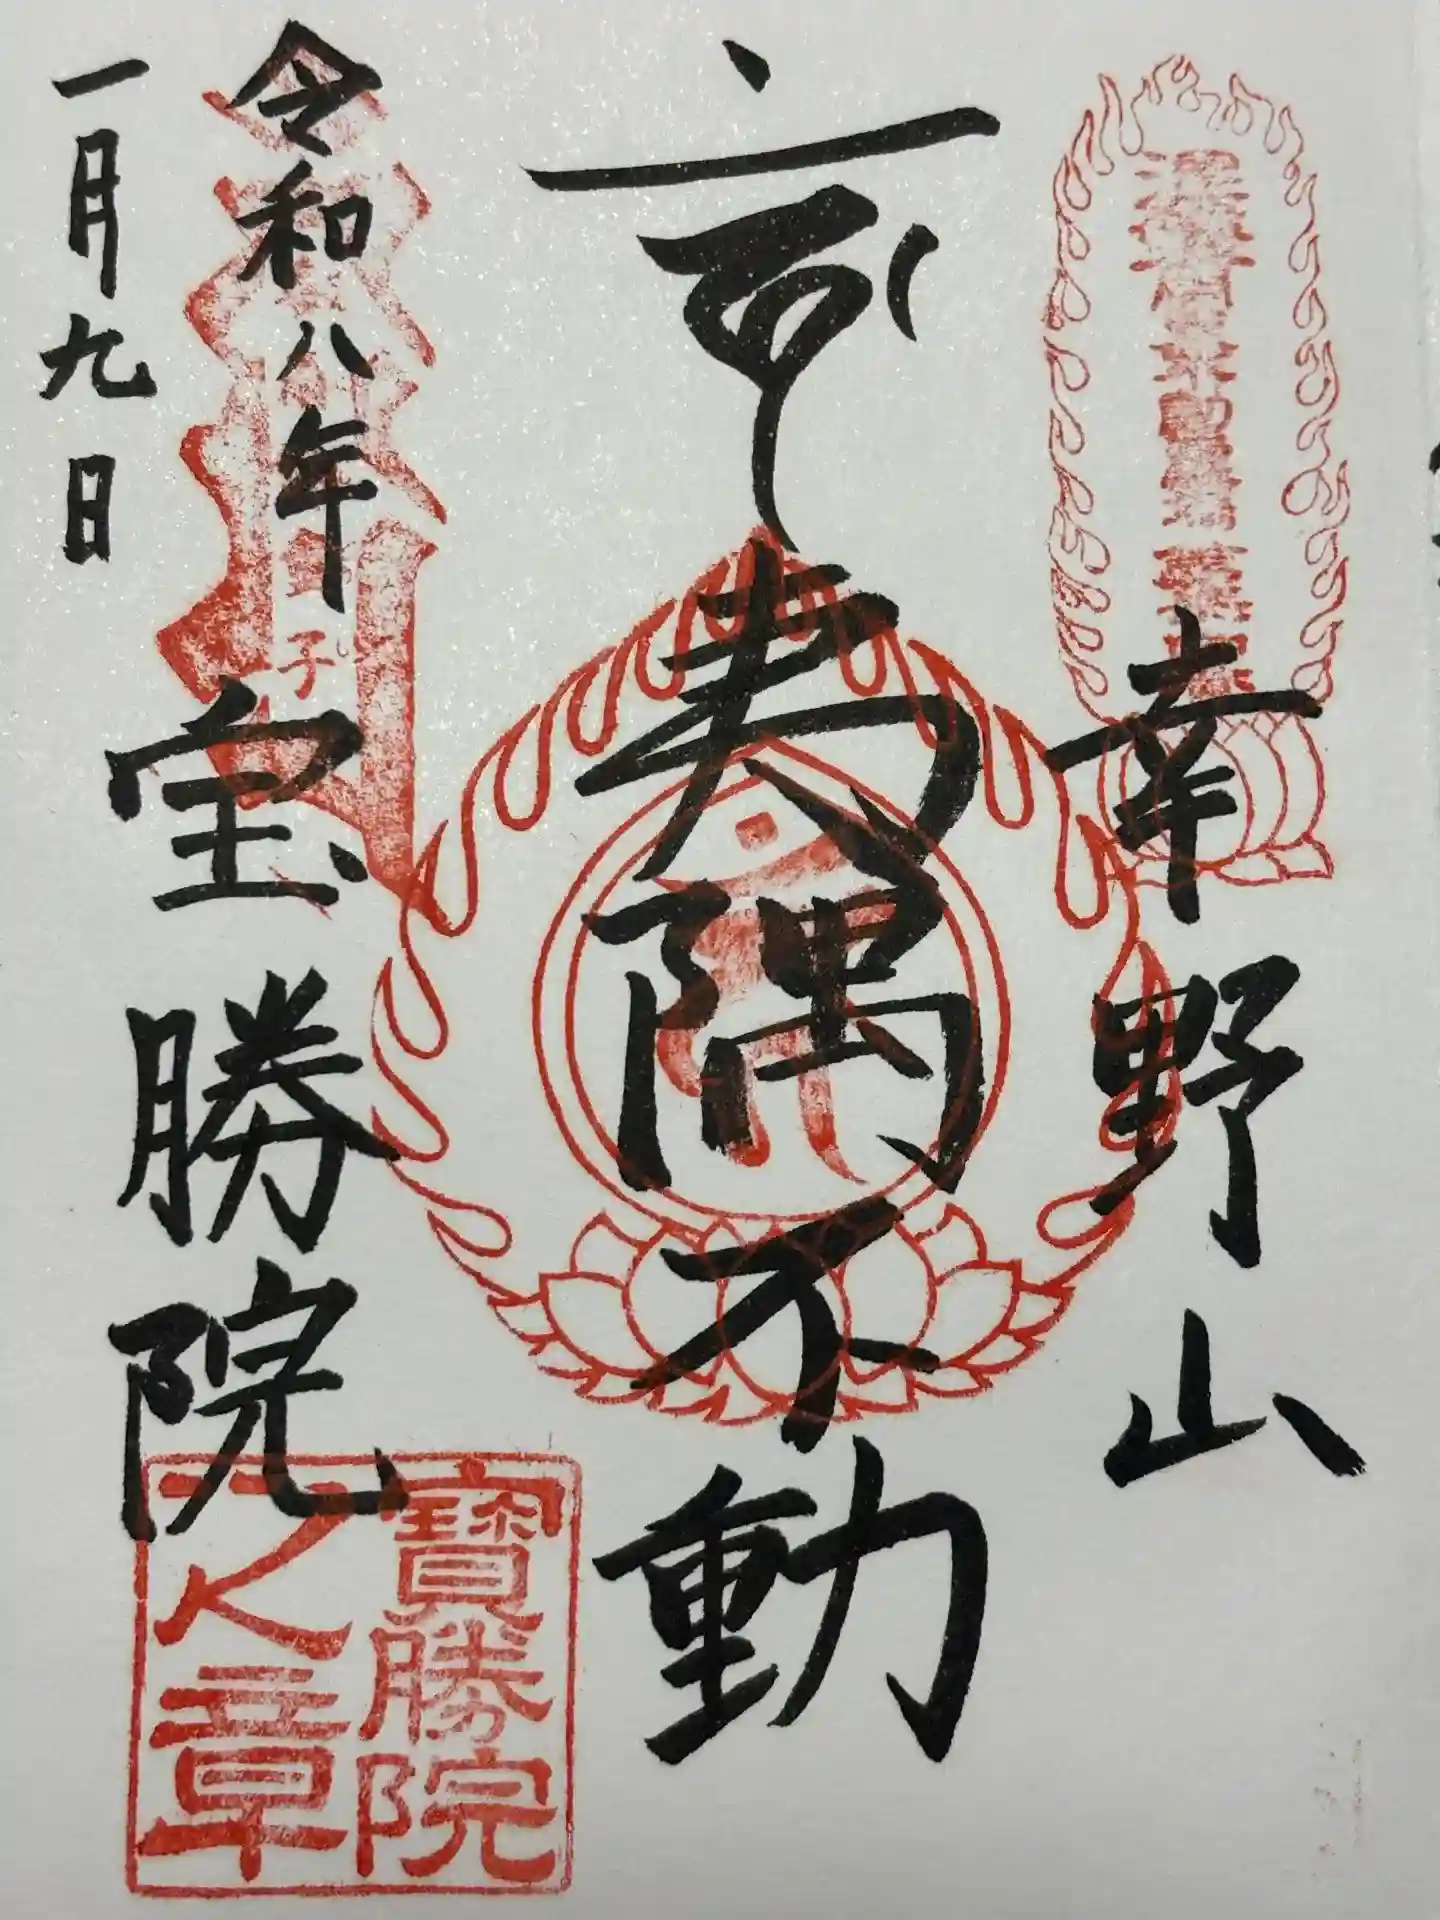 幸野山
夷隅不動
令和八年
一月九日
宝勝院
寶勝院
之章